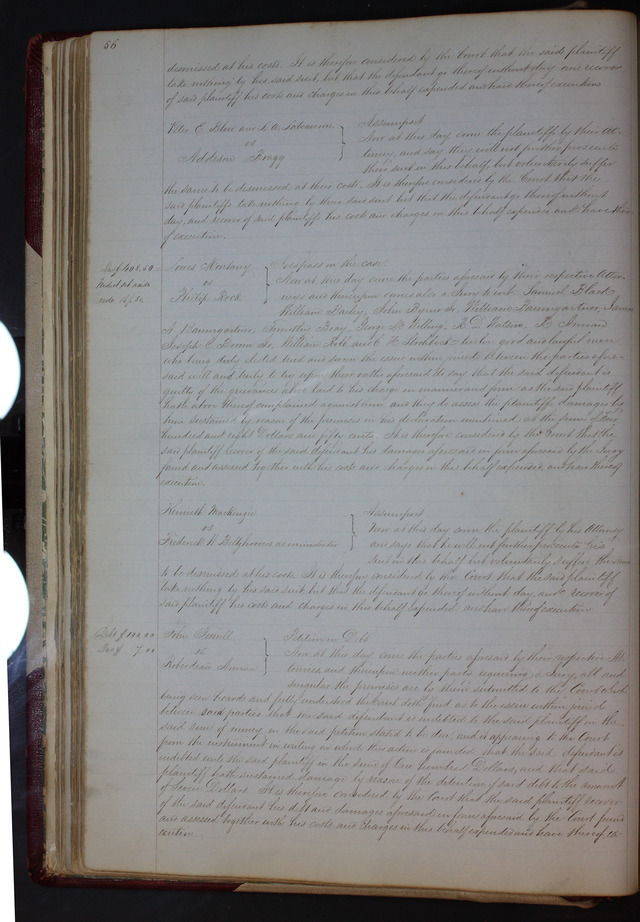 56
dismissed at his costs. It is therefore considered by the Court that the said plaintiff
take nothing by his said suit, but that the defendant go thereof without day and recover
of said plaintiff his costs and charges in this behalf expended and have thereof execution
Assumpsit
vs Now at this day come the plaintiffs by their At-
Addison Bragg torney, and say they will not further prosecute
their suit in this behalf but voluntarily suffer
the same to be dismissed at their costs. It is therefore considered by the Court that the
said plaintiffs take nothing by their said suit but that the defendant go thereof without
day, and recover of said plaintiffs his costs and charges in this behalf expended and have there
of execution.
Louis Trespass on the case
vs Now at this day come the parties aforesaid by their respective Attor-
Philip Rock neys and thereupon comes also a Jury to wit. Samuel
William Bailey, John Byrne Jr, William Baumgartner, James
A. Baumgartner, Bray, George W. R D Watson,
Joseph C. Brown Jr, William Robb and twelve good and lawful men
who being duly elected tried and sworn the issue within joined between the parties afore-
said well and truly to try upon their oaths aforesaid do say that the said defendant is
guilty of the grievances above laid to his charge in manner and form as the said plaintiff
hath above thereof complained against him and they do assess the plaintiffs damages by
him sustained by reason of the premises in his declaration mentioned at the sum of Four
hundred and eight Dollars and fifty cents. It is therefore considered by the Court that the
said plaintiff recover of the said defendant his damages aforesaid in form aforesaid by the Jury
found and assessed together with his costs and charges in this behalf expended, and have thereof
execution.
Kenneth Mackenzie Assumpsit
vs Now at this day came the plaintiff by his Attorney
Frederick administrator and says that he will not further prosecute his
said in this behalf but voluntarily suffer the same
to be dismissed at his costs. It is therefore considered by the Court that the said plaintiff
take nothing by his said suit but that the defendant go thereof without day, and recover of
said plaintiff his costs and charges in this behalf expended and have thereof execution
Debt $100.00 John Petition in Debt
7.00 vs Now at this day come the parties aforesaid by their respective At-
torneys and thereupon neither party requiring a Jury, all and
singular the premises are by them submitted to the Court which
being seen heard and fully understood the Court doth find as to the issue within joined
between said parties that the said defendant is indebted to the said plaintiff in the
said sum of money in the said petition stated to be due, and it appearing to the Court
from the instrument in writing on which this action is founded, that the said defendant is
indebted unto the said plaintiff in the sum of One hundred Dollars, and that said
plaintiff hath sustained damage by reason of the detention of said debt to the amount
of Seven Dollars. It is therefore considered by the Court that the said plaintiff recover
of the said defendant his debt and damages aforesaid in form aforesaid by the Court found
and assessed together with his costs and charges in this behalf expended and have thereof ex-
ecution.